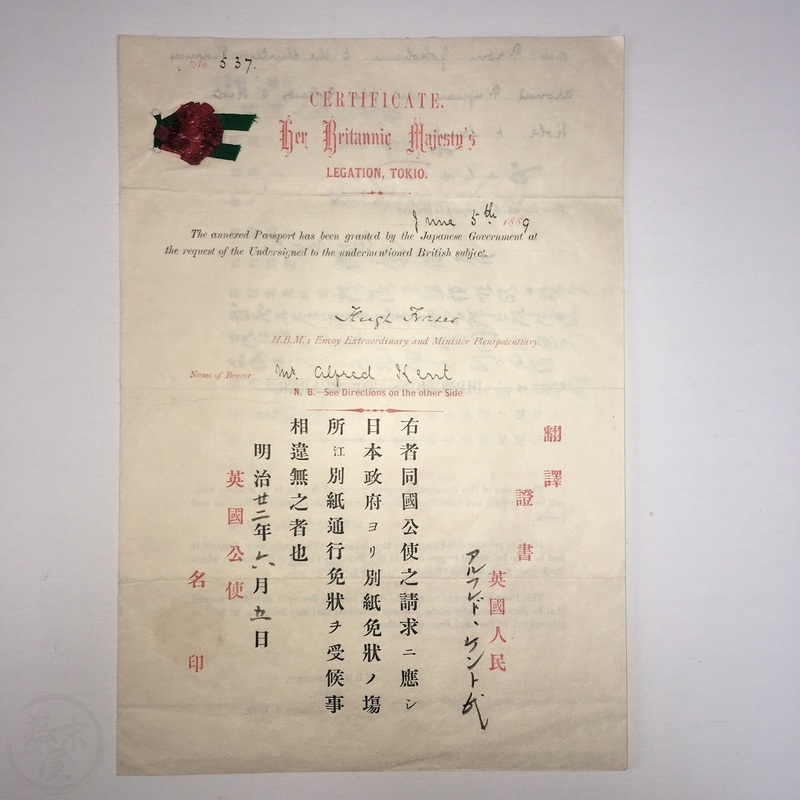 No. 537.
CERTIFICATE.
Her Britannic Majesty's
LEGATION, TOKIO.
June 5th 1889
The annexed Passport has been granted by the Japanese Government at
the request of the Undersigned to the undermentioned British subject.
Hugh Fraser
H.B.M.s Envoy Extraordinary and Minister Plenipotentiary.
Name of Bearer Mr. Alfred Kent
N. B.—See Directions on the other Side.
翻譯
證書
英國人民
アルフレド、ケント氏
右者同國公使之請求ニ應シ
日本政府ヨリ別紙免狀ノ塲
所江別紙通行免狀ヲ受候事
相違無之者也
明治廿二年六月五日
英國公使
名印